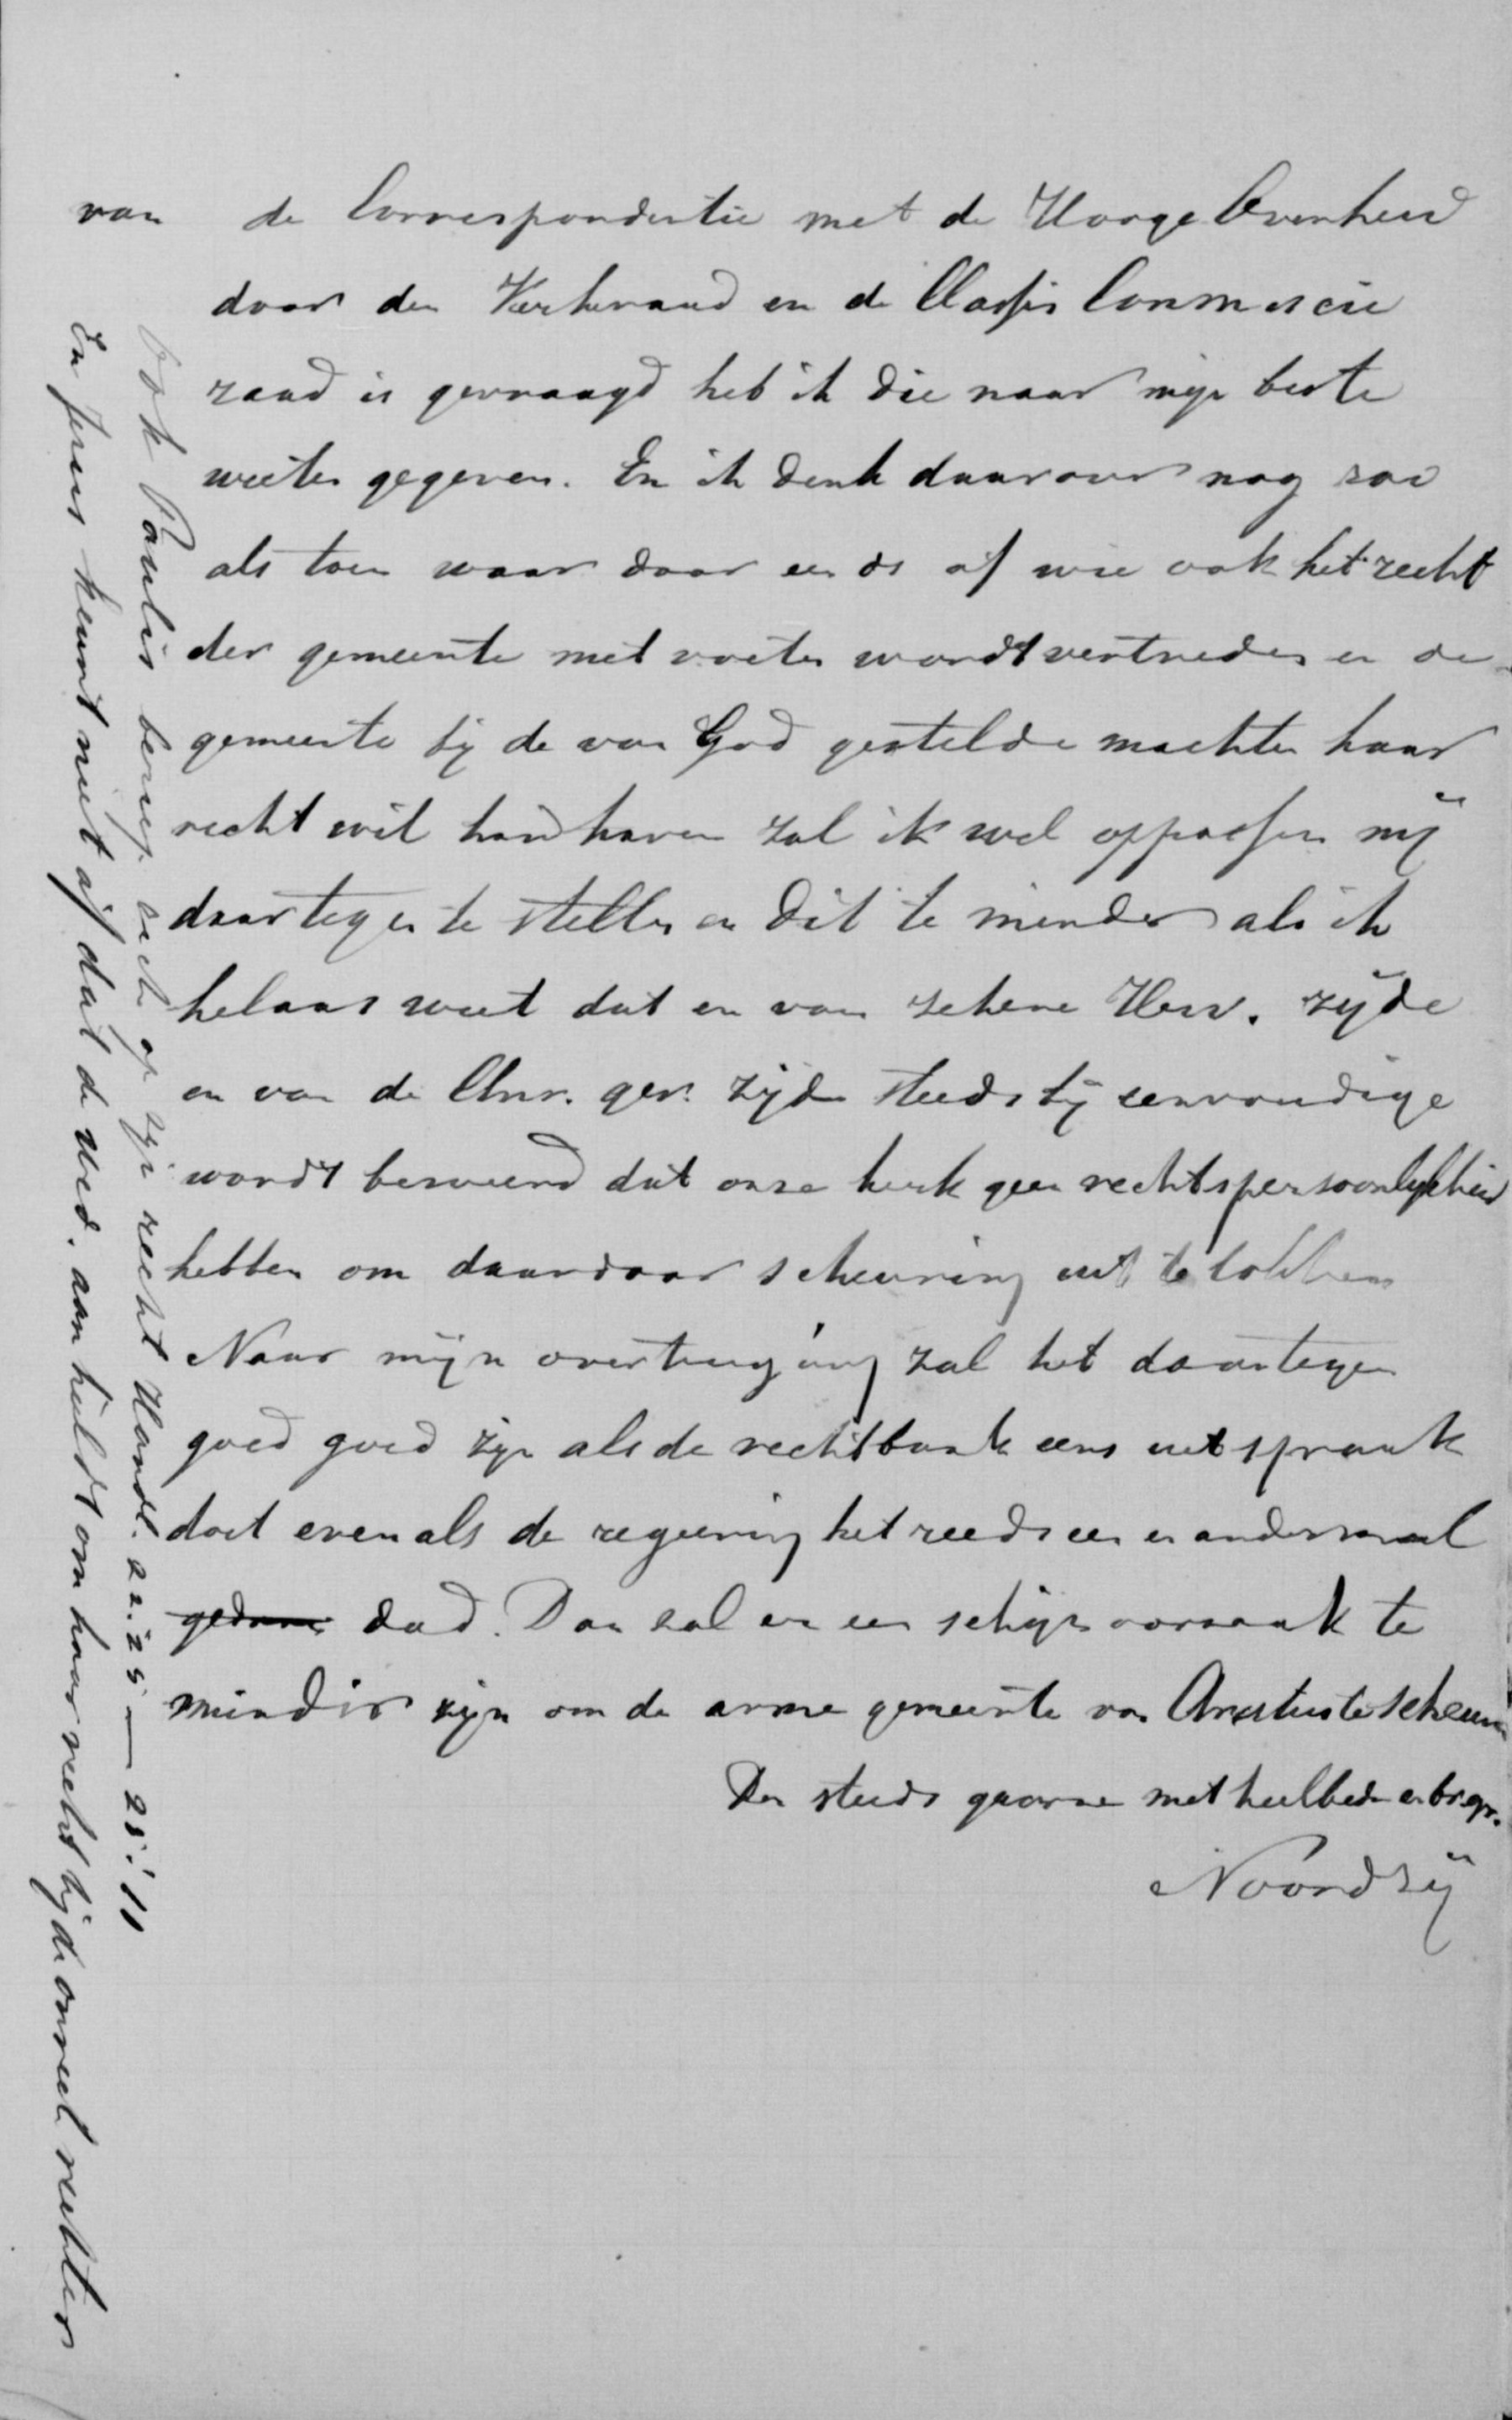 van de Correspondentie met de Hooge Overheid
door den Kerkeraad en de Classis Commiscie
raad is gevraagd heb ik die naar mijn beste
weeten gegeven. En ik denk daarover nog zoo
als toen waar door een ds of wie ook het recht
der gemeente met voeten wordt vertreden en de
gemeente bij de van God gestelde machten haar
recht wil handhaven zal ik wel oppassen mij
daartegen te stellen en dit te minder als ik
helaas weet dat en van zekere Herv. zijde
en van de Chr. ger. zijde steeds bij eenvoudige
wordt beweerd dat onze kerk geen rechtspersoonlykheid
hebben om daardoor scheuring uit te lokken
Naar mijn overtuiging zal het daartegen
goed goed zijn als de rechtbank eens uitspraak
doet evenals de regeering het reeds een en andermaal
gedaan deed. Dan zal er een schijn oorzaak te
minder zijn om de arme gemeente van Christus te scheuren
Den steeds gaarne met heilbede en br. gr.
Noordzij
Ook Paulus beriep zich op zijn recht Hand. 22.25 — 25:11
En Jezus keurt niet af dat de wed. aan hieldt om haar recht bij de onrecht rechter